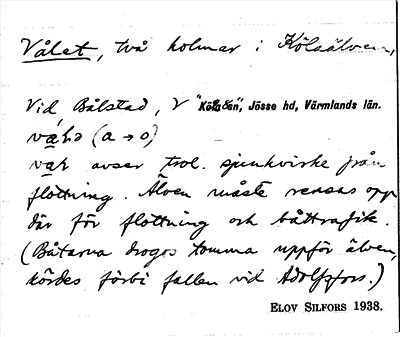 Vålet, två holmar i Kölaälven,
vid Bålstad, V "Köla sn", Jösse hd, Värmlands län.
(a → o)
avser trol. sjunkvirke från
flottning. Älven måste rensas opp
där för flottning och båttrafik.
(Båtarna drogos tomma uppför älven,
kördes förbi fallen vid Adolfsfors.)
ELOV SILFORS 1938.